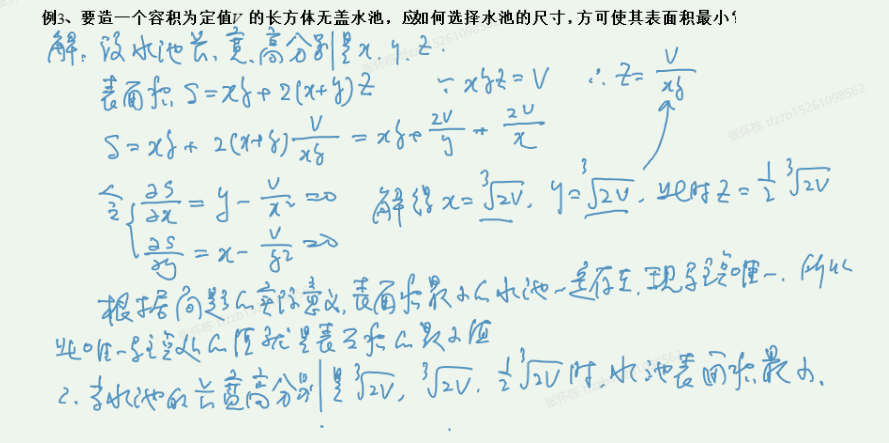 例3、要造一个容积为定值V 的长方体无盖水池，应如何选择水池的尺寸，方可使其表面积最小？
解：设水池长、宽、高分别是x, y, z.
表面积 S=xy+2(x+y)z ∵ xyz=V ∴ z= V/xy
S=xy+ 2(x+y) V/xy = xy+ 2V/y + 2V/x
令 { ∂S/∂x = y - V/x² =0 解得 x=∛2V, y=∛2V, 此时 z= 1/2 ∛2V
∂S/∂y = x- V/y² =0
根据问题的实际意义, 表面积最小的水池一定存在, 现驻点唯一, 所以
此唯一驻点处的值就是表面积的最小值
2. 当水池的长宽高分别是 ∛2V, ∛2V, 1/2 ∛2V 时, 水池表面积最小.
张怀栋 tfzzb15261098562